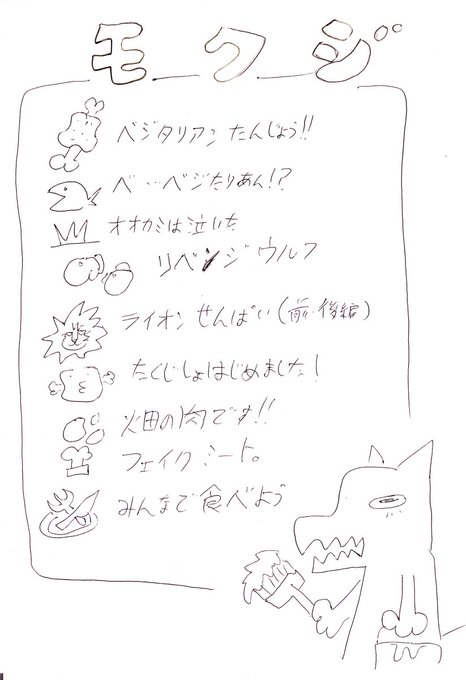 モクジ
ベジタリアン たんじょう!!
べ…ベジたりあん!?
オオカミは泣いた
リベンジウルフ
ライオンせんぱい(前・後編)
たくじしょはじめました!
畑の肉です!!
フェイクミート。
みんなで食べよう